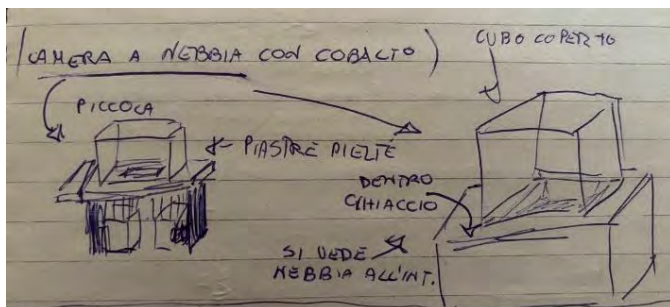 (CAMERA A NEBBIA CON COBALTO)
CUBO COPERTO
PICCOLA
PIASTRE PIEZTÉ
DENTRO
GHIACCIO
SI VEDE
NEBBIA ALL'INT.